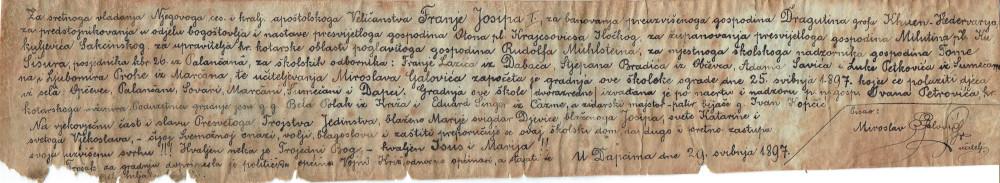 Za sretnoga vladanja Njegovoga ces. i kralj. apoštolskoga Veličanstva Franje Josipa I., za banovanja preuzvišenoga gospodina Dragutina grofa Khuen-Hedervarya,
za predstojnikovanja u odjelu bogoštovlja i nastave presvijetloga gospodina Otona pl. Krajcsovicsa Iločkog, za županovanja presvijetloga gospodina Milutina pl. Ku
kuljevića Sakcinskog, za upravitelja kr. kotarske oblasti poglavitoga gospodina Rudolfa Mühlsteina, za mjestnoga školskoga nadzornika gospodina Tome
Sišura, posjednika kbr. 20. iz Palančana, za školskih odbornika: Franje Lazića iz Dabaca, Stjepana Bradića iz Občeva, Adama Savića i Luke Petkovića iz Šumećana
na i Ljubomira Prohe iz Marčana, te učiteljevanja Miroslava Galovića započeta je gradnja ove školske ograde dne 25. svibnja 1897. koju će polaziti djeca
iz sela: Opčevec, Palančani, Šovari, Marčani, Šumećani i Dapci. Gradnja ove škole (dvorazredno) izrađana je po nacrtu i nadzoru p. n. gosp. Ivana Petrovića kr.
kotarskoga Poduzetnici gradnje jesu g. g. Bela Polak iz Križa i Eduard Singer iz Čazme, a zidarski majstor-palir bijaše g. Ivan Kopčić.
Na vjekovječnu čast i slavu Presvetoga Trojstva Jedinstva, blažene Marije svigdar Djevice blaženoga Josipa, svete Katarine i
svetoga Vjekoslava, - čijoj Svemožnoj snazi, volji, blagoslovu i zaštiti preporučuje se ovaj školski dom, da dugo i sretno zastupa
svoju uzvišenu svrhu !!! Hvaljen neka je Trojedni Bog, - hvaljen Isus i Marija !!
za gradnju je politička općina Vojni Križ odnosno općinari, a stajati će
U Dapcima dne 29. svibnja 1897.
Pisao:
Miroslav Galović
učitelj